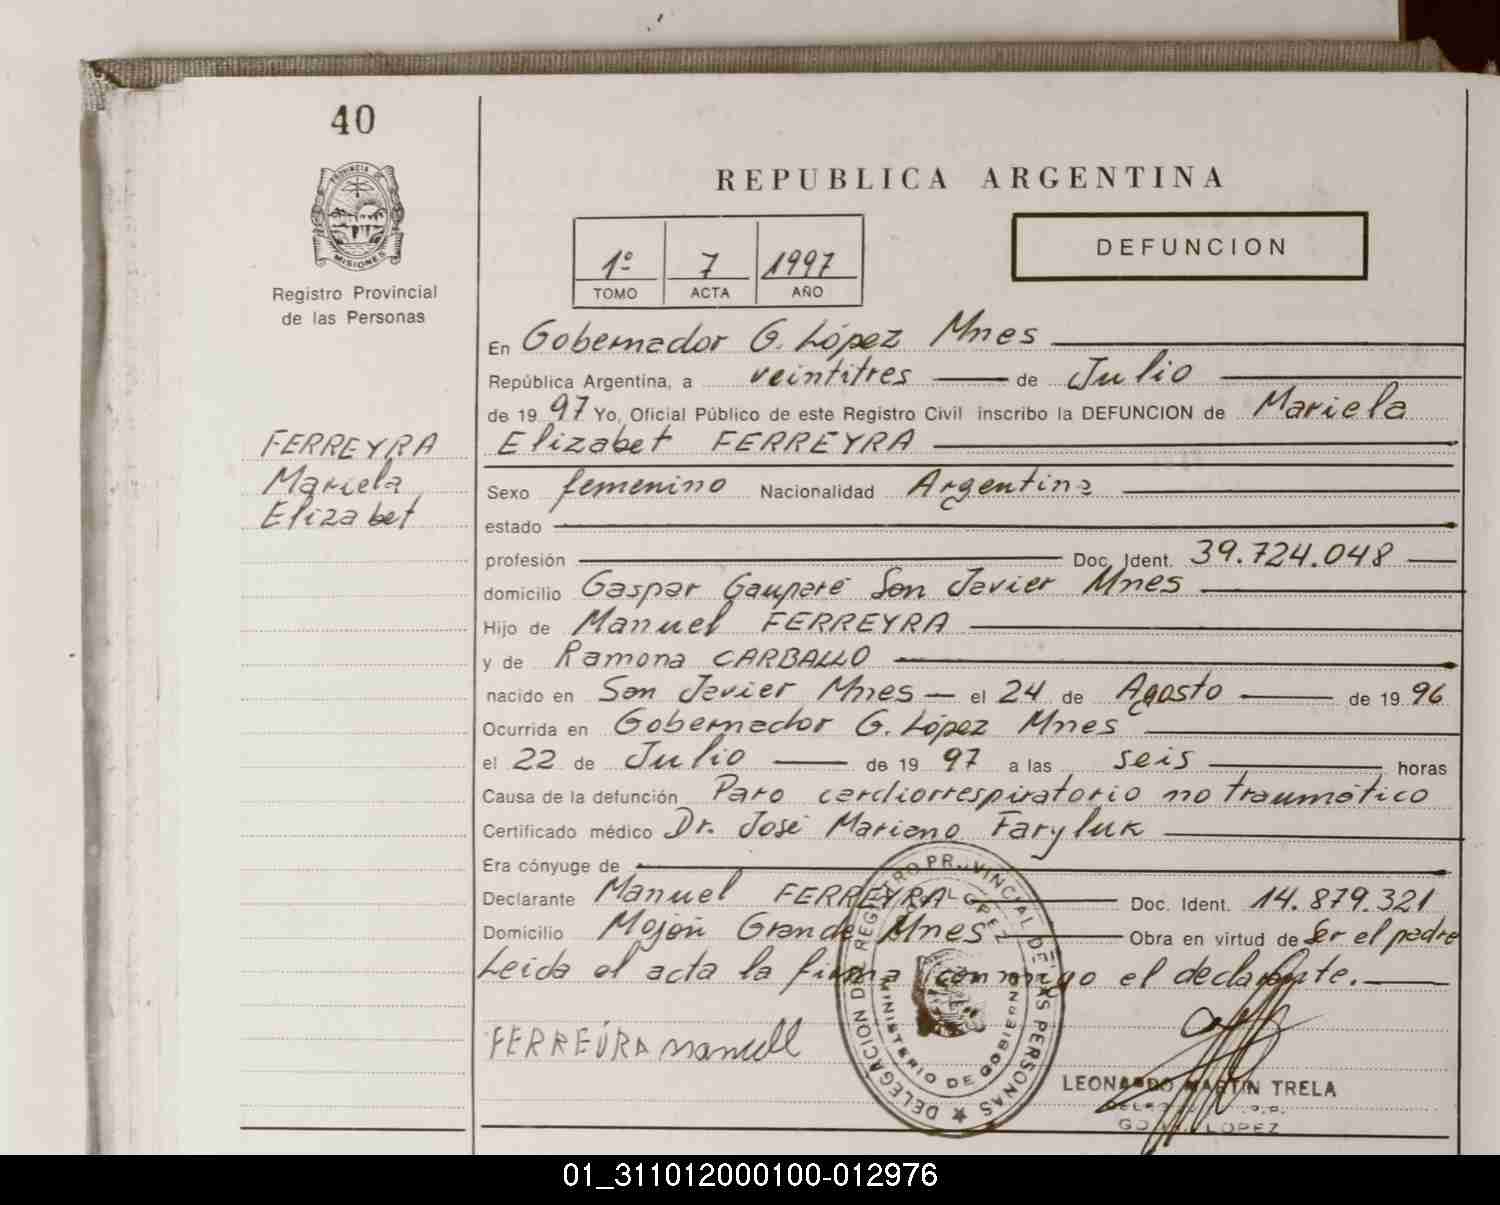 40
PROVINCIA DE
MISIONES
Registro Provincial
de las Personas
REPUBLICA ARGENTINA
1º 7 1997
TOMO ACTA AÑO
DEFUNCION
En Gobernador G. López Mnes
República Argentina, a veintitres de Julio
de 1997 Yo, Oficial Público de este Registro Civil inscribo la DEFUNCION de Mariela
Elizabet FERREYRA
FERREYRA
Mariela
Elizabet
Sexo femenino Nacionalidad Argentina
estado
profesión Doc. Ident. 39.724.048
domicilio Gaspar Gauparé San Javier Mnes
Hijo de Manuel FERREYRA
y de Ramona CARBALLO
nacido en San Javier Mnes el 24 de Agosto de 1996
Ocurrida en Gobernador G. López Mnes
el 22 de Julio de 1997 a las seis horas
Causa de la defunción Paro cardiorrespiratorio no traumático
Certificado médico Dr. José Mariano Faryluk
Era cónyuge de
Declarante Manuel FERREYRA Doc. Ident. 14.879.321
Domicilio Mojón Grande Mnes Obra en virtud de Ser el padre
Leida el acta la firma conmigo el declarante.
FERREÚRA manuell
DELEGACION DEL REGISTRO PROVINCIAL DE LAS PERSONAS
MINISTERIO DE GOBIERNO
LEONARDO MARTIN TRELA
LOPEZ
01_311012000100-012976